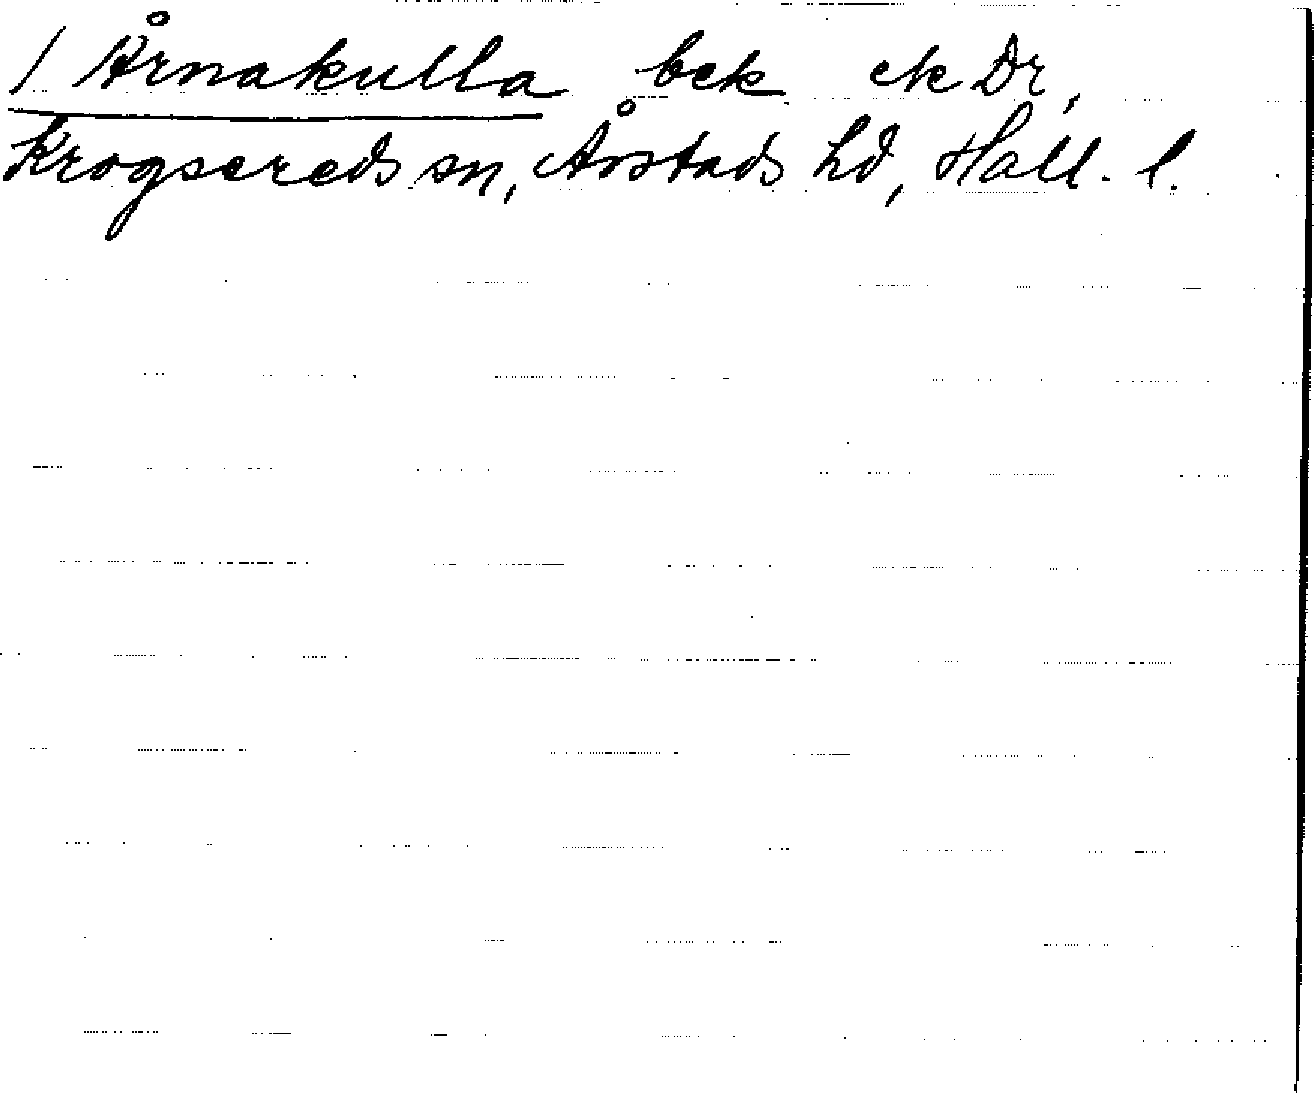 / Årnakulla bek ek Dr,
Krogsereds sn, Årstads hd, Hall. l.